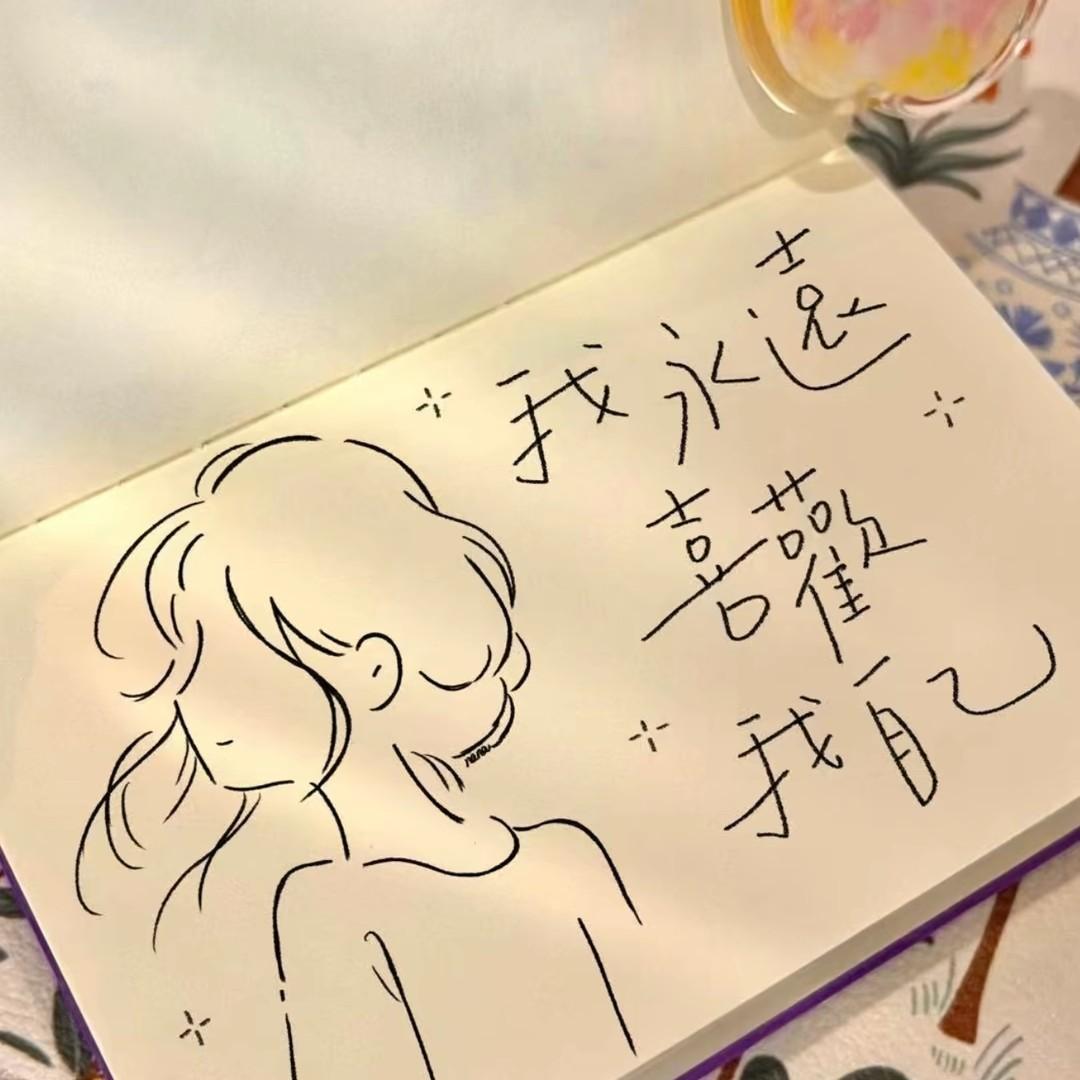 我永遠
喜歡
我自己
nana